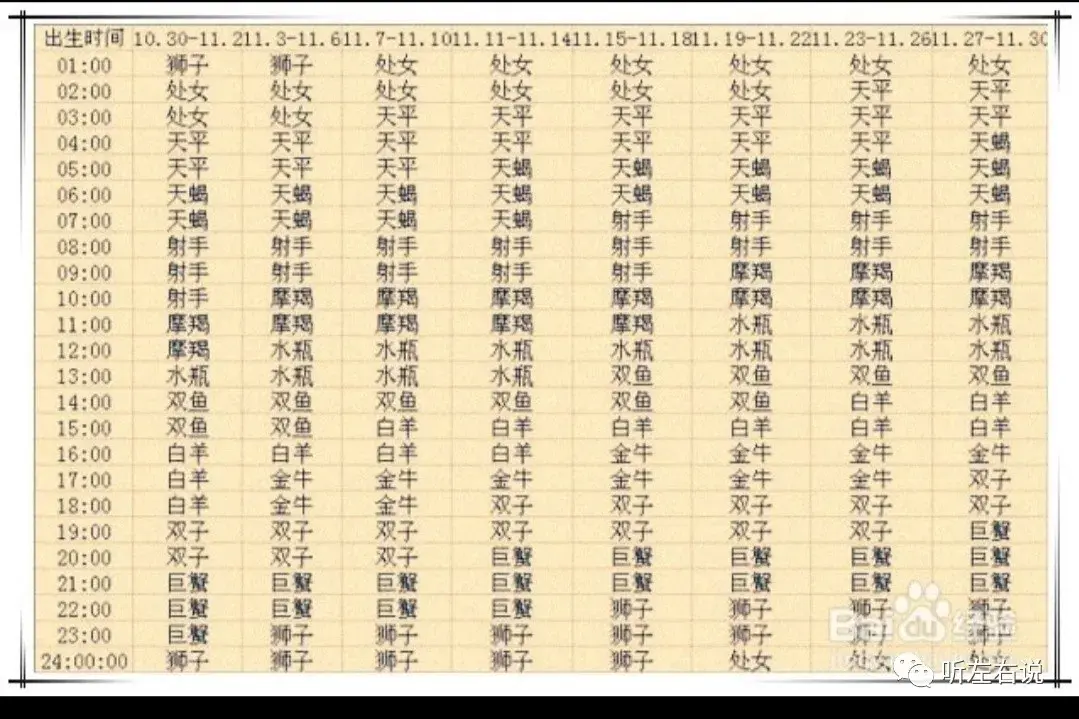 出生时间 10.30-11.2 11.3-11.6 11.7-11.10 11.11-11.14 11.15-11.18 11.19-11.22 11.23-11.26 11.27-11.30
01:00 狮子 狮子 处女 处女 处女 处女 处女 处女
02:00 处女 处女 处女 处女 处女 处女 天平 天平
03:00 处女 处女 天平 天平 天平 天平 天平 天平
04:00 天平 天平 天平 天平 天平 天平 天平 天蝎
05:00 天平 天平 天平 天蝎 天蝎 天蝎 天蝎 天蝎
06:00 天蝎 天蝎 天蝎 天蝎 天蝎 天蝎 天蝎 天蝎
07:00 天蝎 天蝎 天蝎 天蝎 射手 射手 射手 射手
08:00 射手 射手 射手 射手 射手 射手 射手 射手
09:00 射手 射手 射手 射手 射手 摩羯 摩羯 摩羯
10:00 射手 摩羯 摩羯 摩羯 摩羯 摩羯 摩羯 摩羯
11:00 摩羯 摩羯 摩羯 摩羯 摩羯 水瓶 水瓶 水瓶
12:00 摩羯 水瓶 水瓶 水瓶 水瓶 水瓶 水瓶 水瓶
13:00 水瓶 水瓶 水瓶 水瓶 双鱼 双鱼 双鱼 双鱼
14:00 双鱼 双鱼 双鱼 双鱼 双鱼 双鱼 白羊 白羊
15:00 双鱼 双鱼 白羊 白羊 白羊 白羊 白羊 白羊
16:00 白羊 白羊 白羊 白羊 金牛 金牛 金牛 金牛
17:00 白羊 金牛 金牛 金牛 金牛 金牛 金牛 双子
18:00 白羊 金牛 金牛 双子 双子 双子 双子 双子
19:00 双子 双子 双子 双子 双子 双子 双子 巨蟹
20:00 双子 双子 双子 巨蟹 巨蟹 巨蟹 巨蟹 巨蟹
21:00 巨蟹 巨蟹 巨蟹 巨蟹 巨蟹 巨蟹 巨蟹 巨蟹
22:00 巨蟹 巨蟹 巨蟹 巨蟹 狮子 狮子 狮子 狮子
23:00 巨蟹 狮子 狮子 狮子 狮子 狮子
24:00:00 狮子 狮子 狮子 狮子 狮子 处女 处女 处女
Bai 经验
听左右说